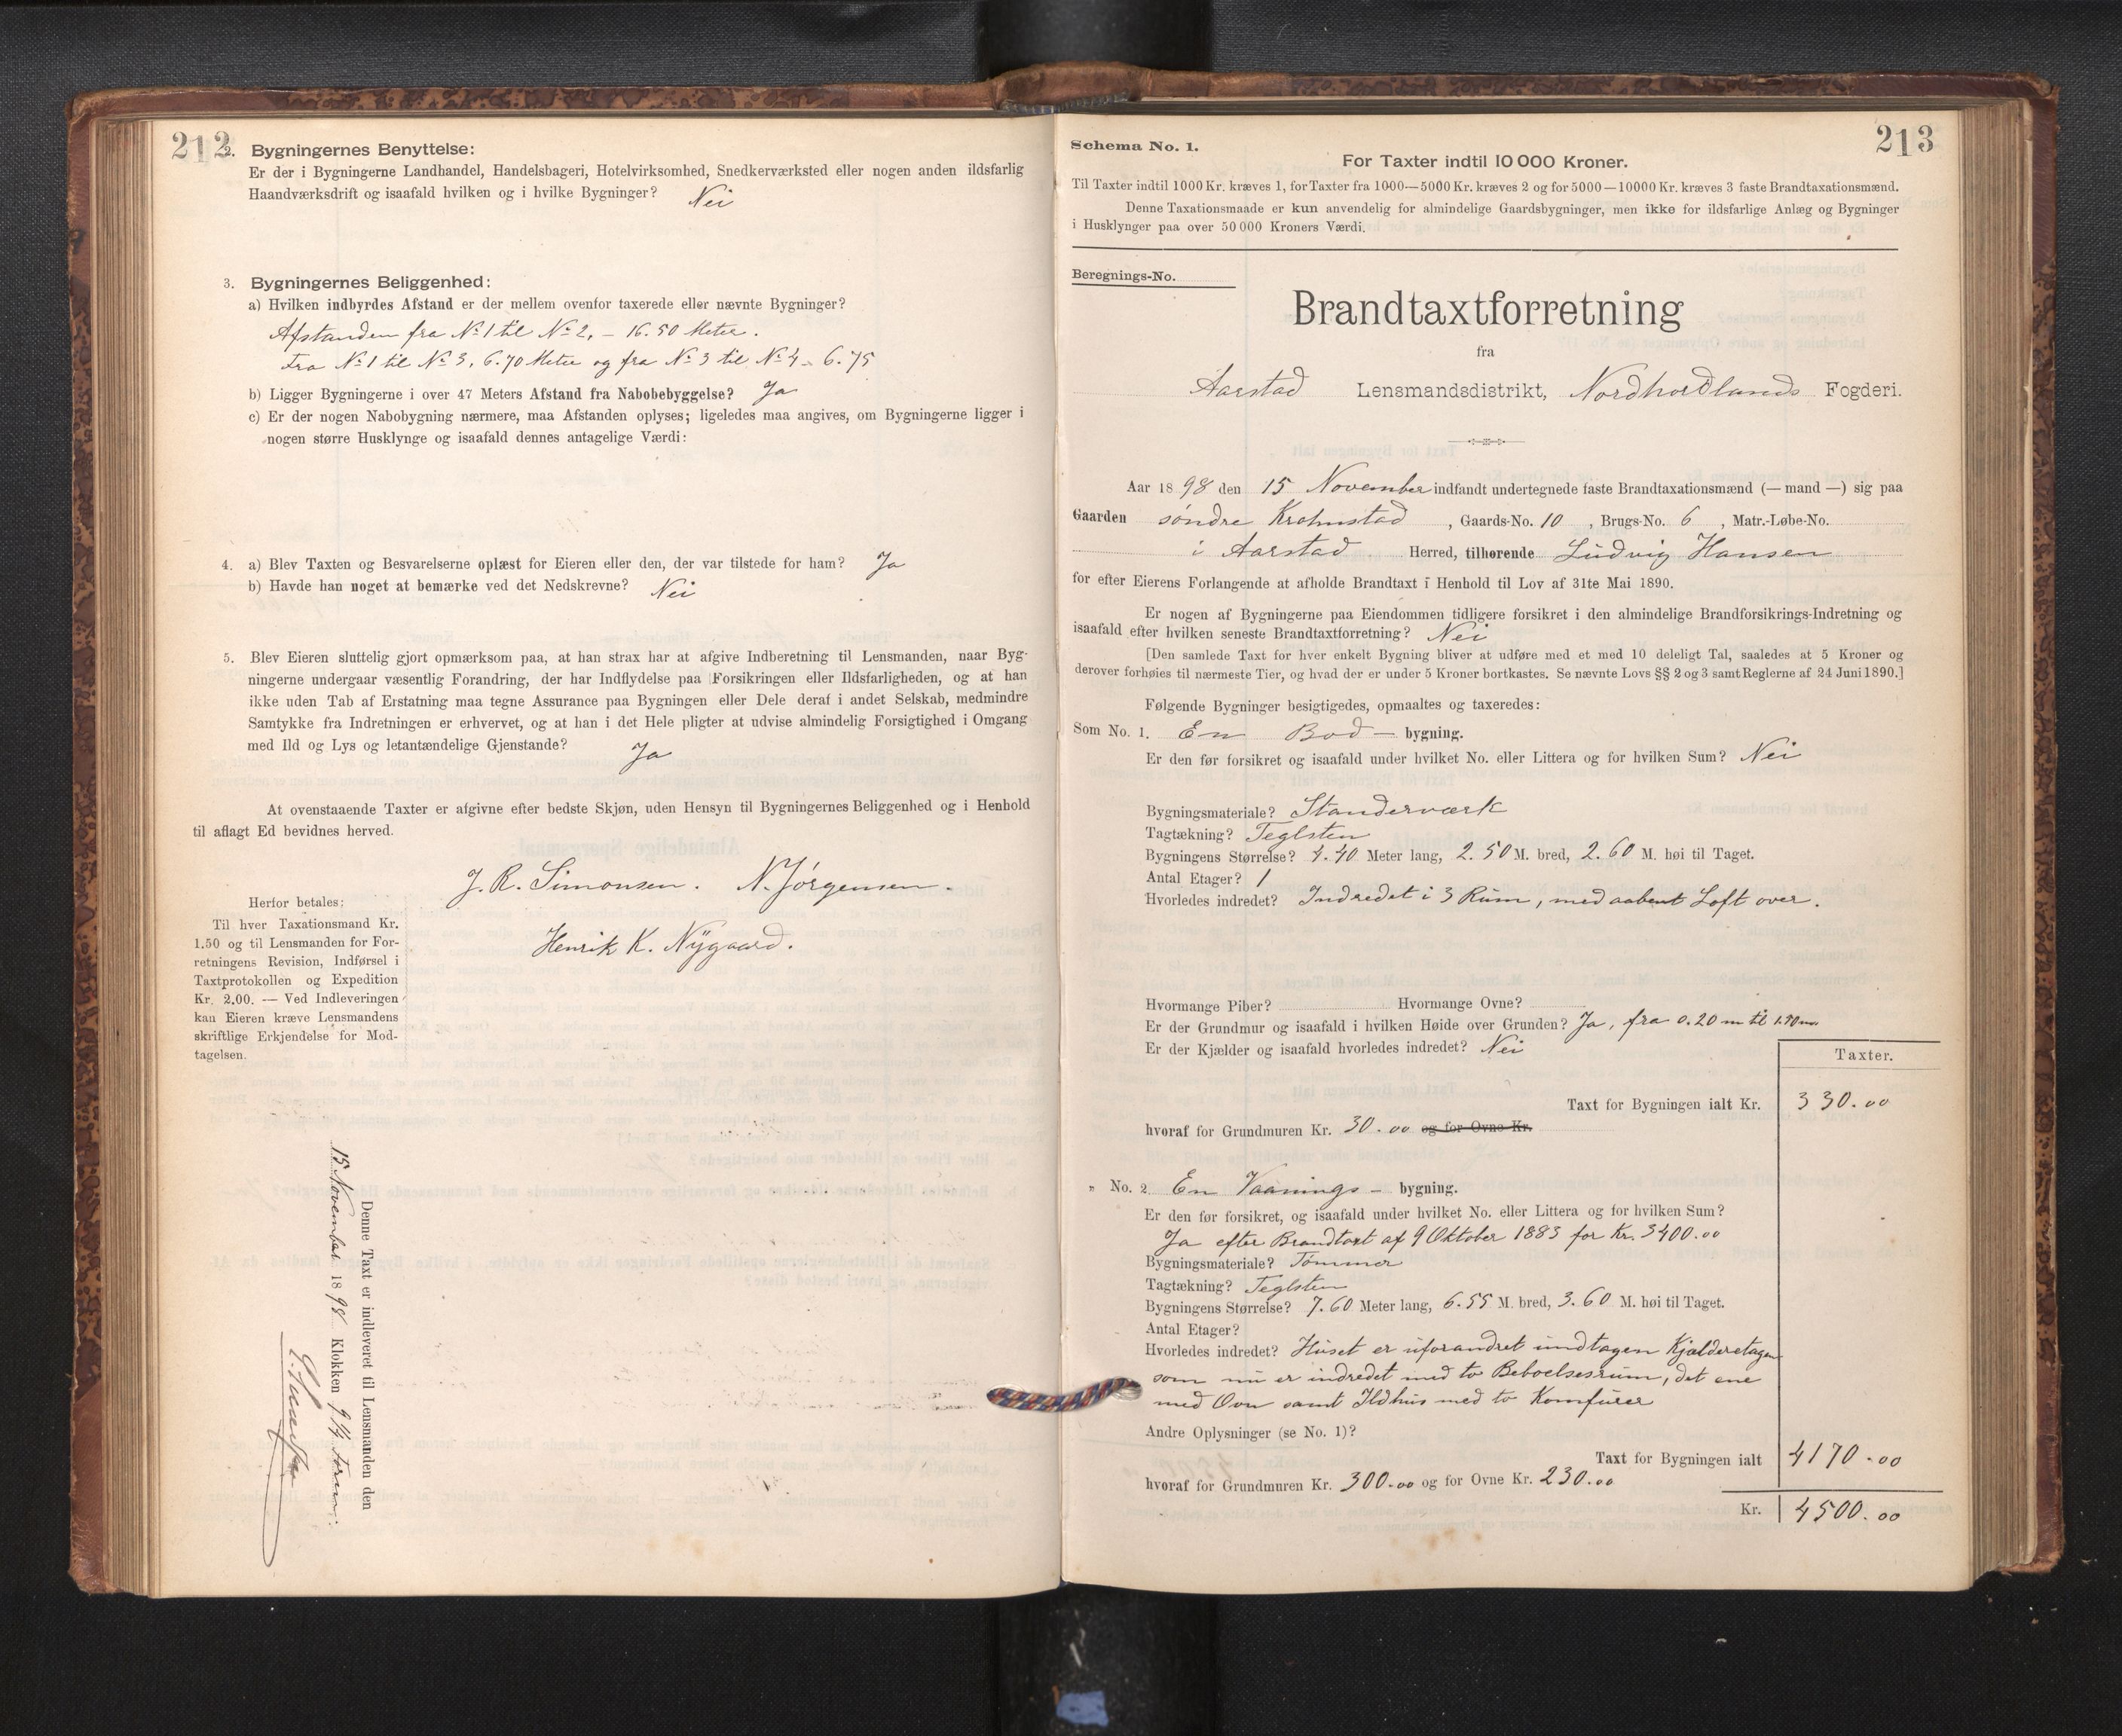 212
2. Bygningernes Benyttelse:
Er der i Bygningerne Landhandel, Handelsbageri, Hotelvirksomhed, Snedkerværksted eller nogen anden ildsfarlig
Haandværksdrift og isaafald hvilken og i hvilke Bygninger? Nei
3. Bygningernes Beliggenhed:
a) Hvilken indbyrdes Afstand er der mellem ovenfor taxerede eller nævnte Bygninger?
Afstanden fra No 1 til No 2, – 16.50 Meter.
Fra No 1 til No 3, 6.70 Meter og fra No 3 til No 4 – 6.75
b) Ligger Bygningerne i over 47 Meters Afstand fra Nabobebyggelse? Ja
c) Er der nogen Nabobygning nærmere, maa Afstanden oplyses; ligeledes maa angives, om Bygningerne ligger i
nogen større Husklynge og isaafald dennes antagelige Værdi:
4. a) Blev Taxten og Besvarelserne oplæst for Eieren eller den, der var tilstede for ham? Ja
b) Havde han noget at bemærke ved det Nedskrevne? Nei
5. Blev Eieren sluttelig gjort opmærksom paa, at han strax har at afgive Indberetning til Lensmanden, naar Byg-
ningerne undergaar væsentlig Forandring, der har Indflydelse paa Forsikringen eller Ildsfarligheden, og at han
ikke uden Tab af Erstatning maa tegne Assurance paa Bygningen eller Dele deraf i andet Selskab, medmindre
Samtykke fra Indretningen er erhvervet, og at han i det Hele pligter at udvise almindelig Forsigtighed i Omgang
med Ild og Lys og letantændelige Gjenstande? Ja
At ovenstaaende Taxter er afgivne efter bedste Skjøn, uden Hensyn til Bygningernes Beliggenhed og i Henhold
til aflagt Ed bevidnes herved.
J. R. Simonsen. N. Jörgensen.
Henrik K. Nÿgaard.
Herfor betales:
Til hver Taxationsmand Kr.
1.50 og til Lensmanden for For-
retningens Revision, Indførsel i
Taxtprotokollen og Expedition
Kr. 2.00. — Ved Indleveringen
kan Eieren kræve Lensmandens
skriftlige Erkjendelse for Mod-
tagelsen.
Denne Taxt er indleveret til Lensmanden den
15 November 1898 Klokken 9 1/4 form:
213
Schema No. 1.
For Taxter indtil 10 000 Kroner.
Til Taxter indtil 1000 Kr. kræves 1, for Taxter fra 1000—5000 Kr. kræves 2 og for 5000—10000 Kr. kræves 3 faste Brandtaxationsmænd.
Denne Taxationsmaade er kun anvendelig for almindelige Gaardsbygninger, men ikke for ildsfarlige Anlæg og Bygninger
i Husklynger paa over 50 000 Kroners Værdi.
Beregnings-No.
Brandtaxtforretning
fra
Aarstad Lensmandsdistrikt, Nordhordlands Fogderi.
Aar 1898 den 15 November indfandt undertegnede faste Brandtaxationsmænd (— mand —) sig paa
Gaarden söndre Krohnstad, Gaards-No. 10, Brugs-No. 6, Matr.-Løbe-No.
i Aarstad Herred, tilhørende Ludvig Hansen
for efter Eierens Forlangende at afholde Brandtaxt i Henhold til Lov af 31te Mai 1890.
Er nogen af Bygningerne paa Eiendommen tidligere forsikret i den almindelige Brandforsikrings-Indretning og
isaafald efter hvilken seneste Brandtaxtforretning? Nei
[Den samlede Taxt for hver enkelt Bygning bliver at udføre med et med 10 deleligt Tal, saaledes at 5 Kroner og
derover forhøies til nærmeste Tier, og hvad der er under 5 Kroner bortkastes. Se nævnte Lovs §§ 2 og 3 samt Reglerne af 24 Juni 1890.]
Følgende Bygninger besigtigedes, opmaaltes og taxeredes:
Som No. 1. En Bod – bygning.
Er den før forsikret og isaafald under hvilket No. eller Littera og for hvilken Sum? Nei
Bygningsmateriale? Standerværk
Tagtækning? Teglsten
Bygningens Størrelse? 4.40 Meter lang, 2.50 M. bred, 2.60 M. høi til Taget.
Antal Etager? 1
Hvorledes indredet? Indredet i 3 Rum, med aabent Loft over.
Hvormange Piber? Hvormange Ovne?
Er der Grundmur og isaafald i hvilken Høide over Grunden? Ja, fra 0.20 m til
Er der Kjælder og isaafald hvorledes indredet? Nei
Taxter.
Taxt for Bygningen ialt Kr. 330.00
hvoraf for Grundmuren Kr. 30.00 og for Ovne Kr.
" No. 2 En Vaanings – bygning.
Er den før forsikret, og isaafald under hvilket No. eller Littera og for hvilken Sum?
Ja efter Brandtaxt af 9 Oktober 1883 for Kr. 3400.00
Bygningsmateriale? Tömmer
Tagtækning? Teglsten
Bygningens Størrelse? 7.60 Meter lang, 6.55 M. bred, 3.60 M. høi til Taget.
Antal Etager?
Hvorledes indredet? Huset er uforandret undtagen Kjælderetagen
som nu er indredet med to Beboelsesrum, det ene
med Ovn samt Ildhus med to Komfurer
Andre Oplysninger (se No. 1)?
Taxt for Bygningen ialt 4170.00
hvoraf for Grundmuren Kr. 300.00 og for Ovne Kr. 230.00
Kr. 4500.00